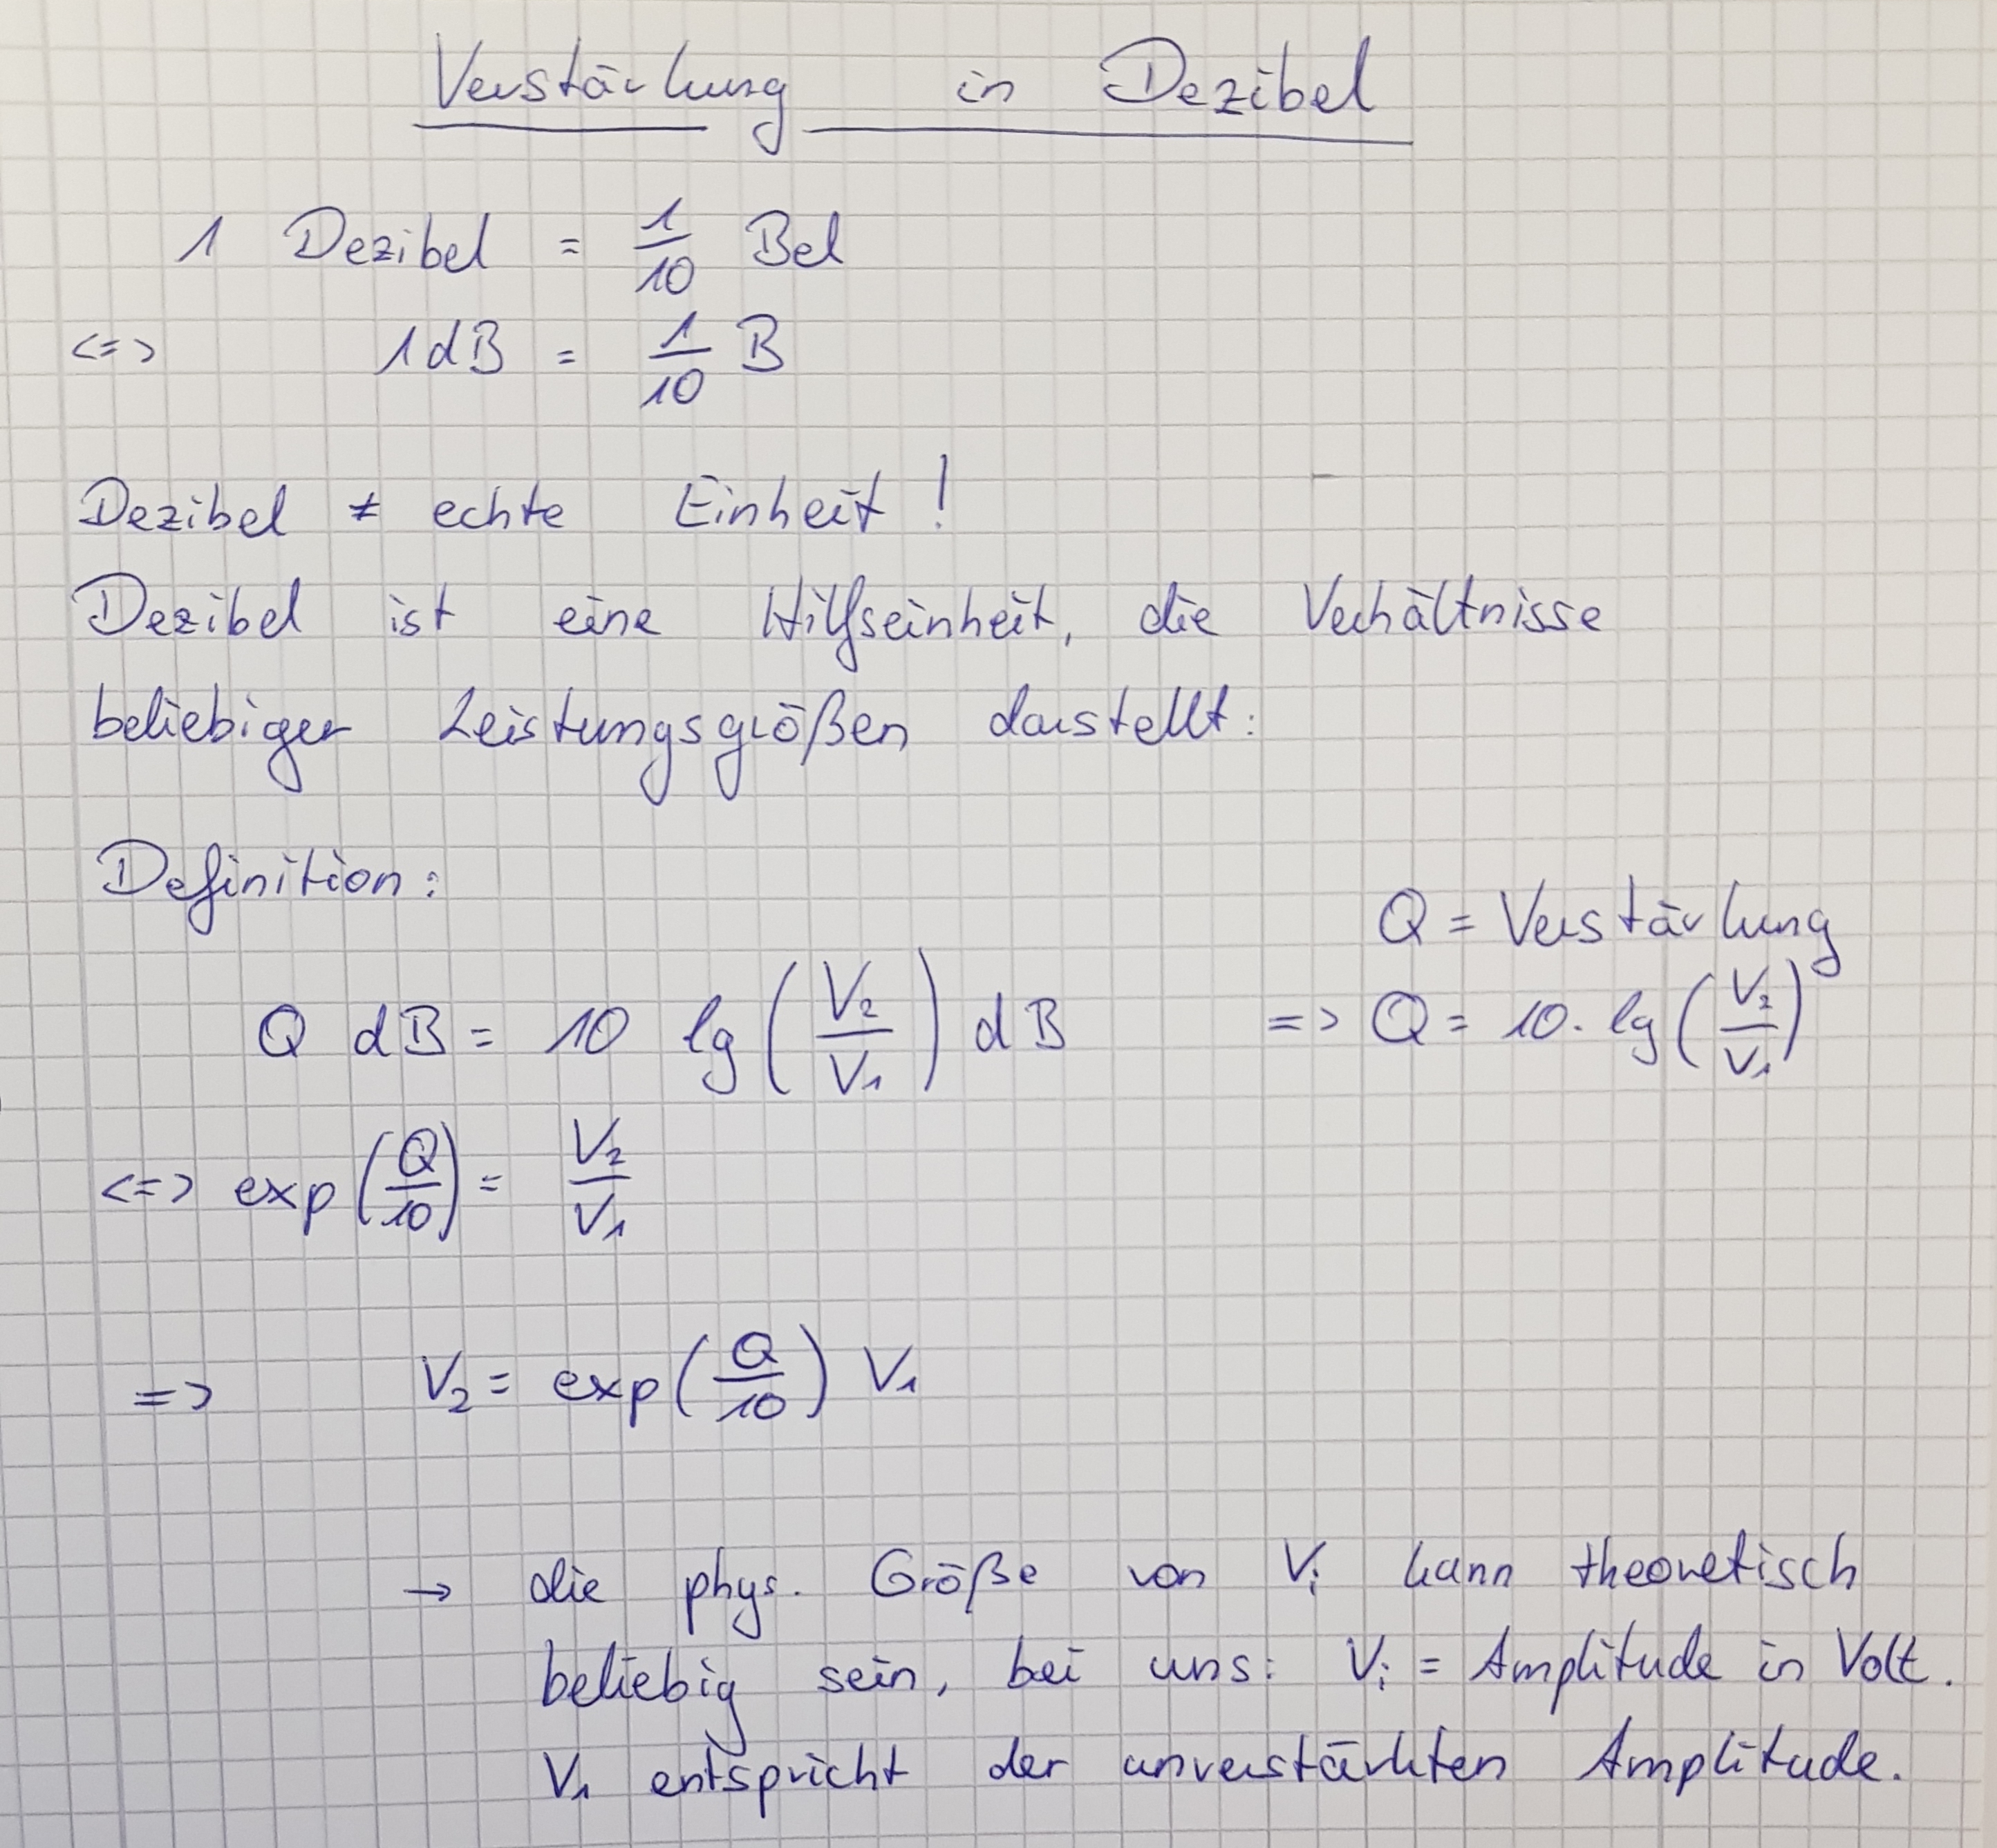 Verstärkung in Dezibel
1 Dezibel = 1/10 Bel
<=> 1dB = 1/10 B
Dezibel ≠ echte Einheit!
Dezibel ist eine Hilfseinheit, die Verhältnisse
beliebiger Leistungsgrößen darstellt:
Definition:
Q = Verstärkung
Q dB = 10 lg(V₂/V₁) dB => Q = 10 · lg(V₂/V₁)
<=> exp(Q/10) = V₂/V₁
=> V₂ = exp(Q/10) V₁
→ die phys. Größe von Vᵢ kann theoretisch
beliebig sein, bei uns: Vᵢ = Amplitude in Volt.
V₁ entspricht der unverstärkten Amplitude.